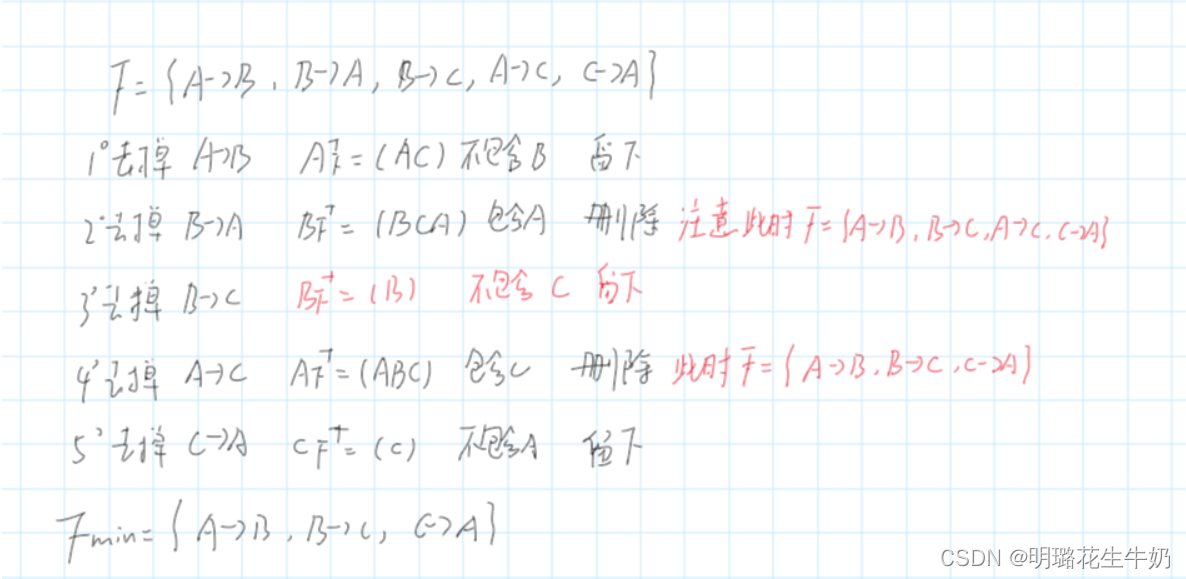 F={A→B, B→A, B→C, A→C, C→A}
1° 去掉 A→B A_F^+=(AC) 不包含B 留下
2° 去掉 B→A B_F^+=(BCA) 包含A 删除 注意此时 F={A→B, B→C, A→C, C→A}
3° 去掉 B→C B_F^+=(B) 不包含 C 留下
4° 去掉 A→C A_F^+=(ABC) 包含C 删除 此时 F={A→B, B→C, C→A}
5° 去掉 C→A C_F^+=(C) 不包含A 留下
Fmin={A→B, B→C, C→A}
CSDN @明璐花生牛奶